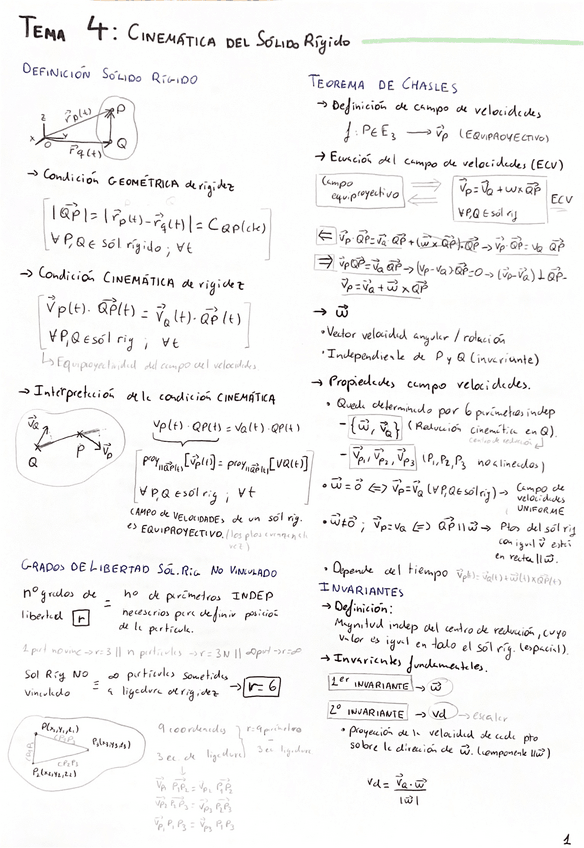 TEMA 4: CINEMÁTICA DEL SÓLIDO RÍGIDO
DEFINICIÓN SÓLIDO RÍGIDO
z
x
y
O
P
Q
r⃗p(t)
r⃗q(t)
→ Condición GEOMÉTRICA de rigidez
|QP⃗| = |r⃗p(t) - r⃗q(t)| = CQP (cte)
∀P,Q ∈ sól rígido ; ∀t
→ Condición CINEMÁTICA de rigidez
V⃗p(t) · QP⃗(t) = V⃗Q(t) · QP⃗(t)
∀P,Q ∈ sól rig ; ∀t
↳ Equiproyectividad del campo del velocidades
→ Interpretación de la condición CINEMÁTICA
V⃗Q
Q
P
V⃗p
Vp(t) · QP(t) = VQ(t) · QP(t)
proy||QP(t)[V⃗p(t)] = proy||QP(t)[VQ(t)]
∀P,Q ∈ sól rig ; ∀t
CAMPO DE VELOCIDADES de un sól rig.
es EQUIPROYECTIVO.
GRADOS DE LIBERTAD SÓL. RIG NO VINCULADO
nº grados de libertad r = nº de parámetros INDEP
necesarios para definir posición
de la partícula.
1 part no vinc → r=3 || n partículas → r=3N || ∞ part → r=∞
Sol Ríg NO vinculado = ∞ partículas sometidas
a ligadura de rigidez → r=6
P(x1,y1,z1)
P3(x3,y3,z3)
P2(x2,y2,z2)
9 coordenadas
3 ec de ligadura
V⃗P1 P1P2 = VP2 P1P2
V⃗P2 P2P3 = V⃗P3 P2P3
V⃗P1 P1P3 = V⃗P3 P1P3
TEOREMA DE CHASLES
→ Definición de campo de velocidades
f: P∈E3 → V⃗p (EQUIPROYECTIVO)
→ Ecuación del campo de velocidades (ECV)
Campo
equiproyectivo
V⃗p = V⃗Q + ω×QP⃗
∀P,Q ∈ sól rig
ECV
⇐ V⃗p·QP⃗ = V⃗Q·QP⃗ + (ω⃗×QP⃗)·QP⃗ → V⃗p·QP⃗ = VQ QP⃗
⇒ V⃗p QP⃗ = V⃗Q QP⃗ → (Vp-VQ) QP⃗ = 0 → (V⃗p-V⃗Q) ⊥ QP→
V⃗p = V⃗Q + ω⃗ × QP⃗
→ ω⃗
• Vector velocidad angular / rotación
• Independiente de P y Q (invariante)
→ Propiedades campo velocidades.
• Queda determinado por 6 parámetros indep
- {ω⃗, V⃗Q} (Reducción cinemática en Q).
centro de reducción
- V⃗P1, V⃗P2, V⃗P3 (P1,P2,P3 no alineados)
• ω⃗=0⃗ ⇔ V⃗p=V⃗Q (∀P,Q∈sól rig) → Campo de
velocidades
UNIFORME
• ω⃗≠0 ; V⃗p=VQ ⇔ QP||ω⃗ → Ptos del sól rig
con igual V⃗ está
en recta ||ω⃗.
• Depende del tiempo V⃗p(t) = V⃗Q(t) + ω⃗(t)×QP(t)
INVARIANTES
→ Definición:
Magnitud indep del centro de reducción, cuyo
valor es igual en todo el sól ríg. (espacial).
→ Invariantes fundamentales.
1er INVARIANTE → ω⃗
2º INVARIANTE → vd → escalar
• proyección de la velocidad de cada pto
sobre la dirección de ω⃗. (componente ||ω⃗)
vd = V⃗Q·ω⃗ / |ω⃗|
1